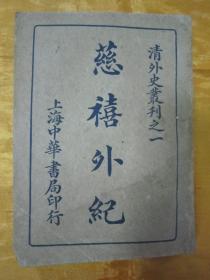 清外史叢刊之一
慈禧外紀
上海中華書局印行